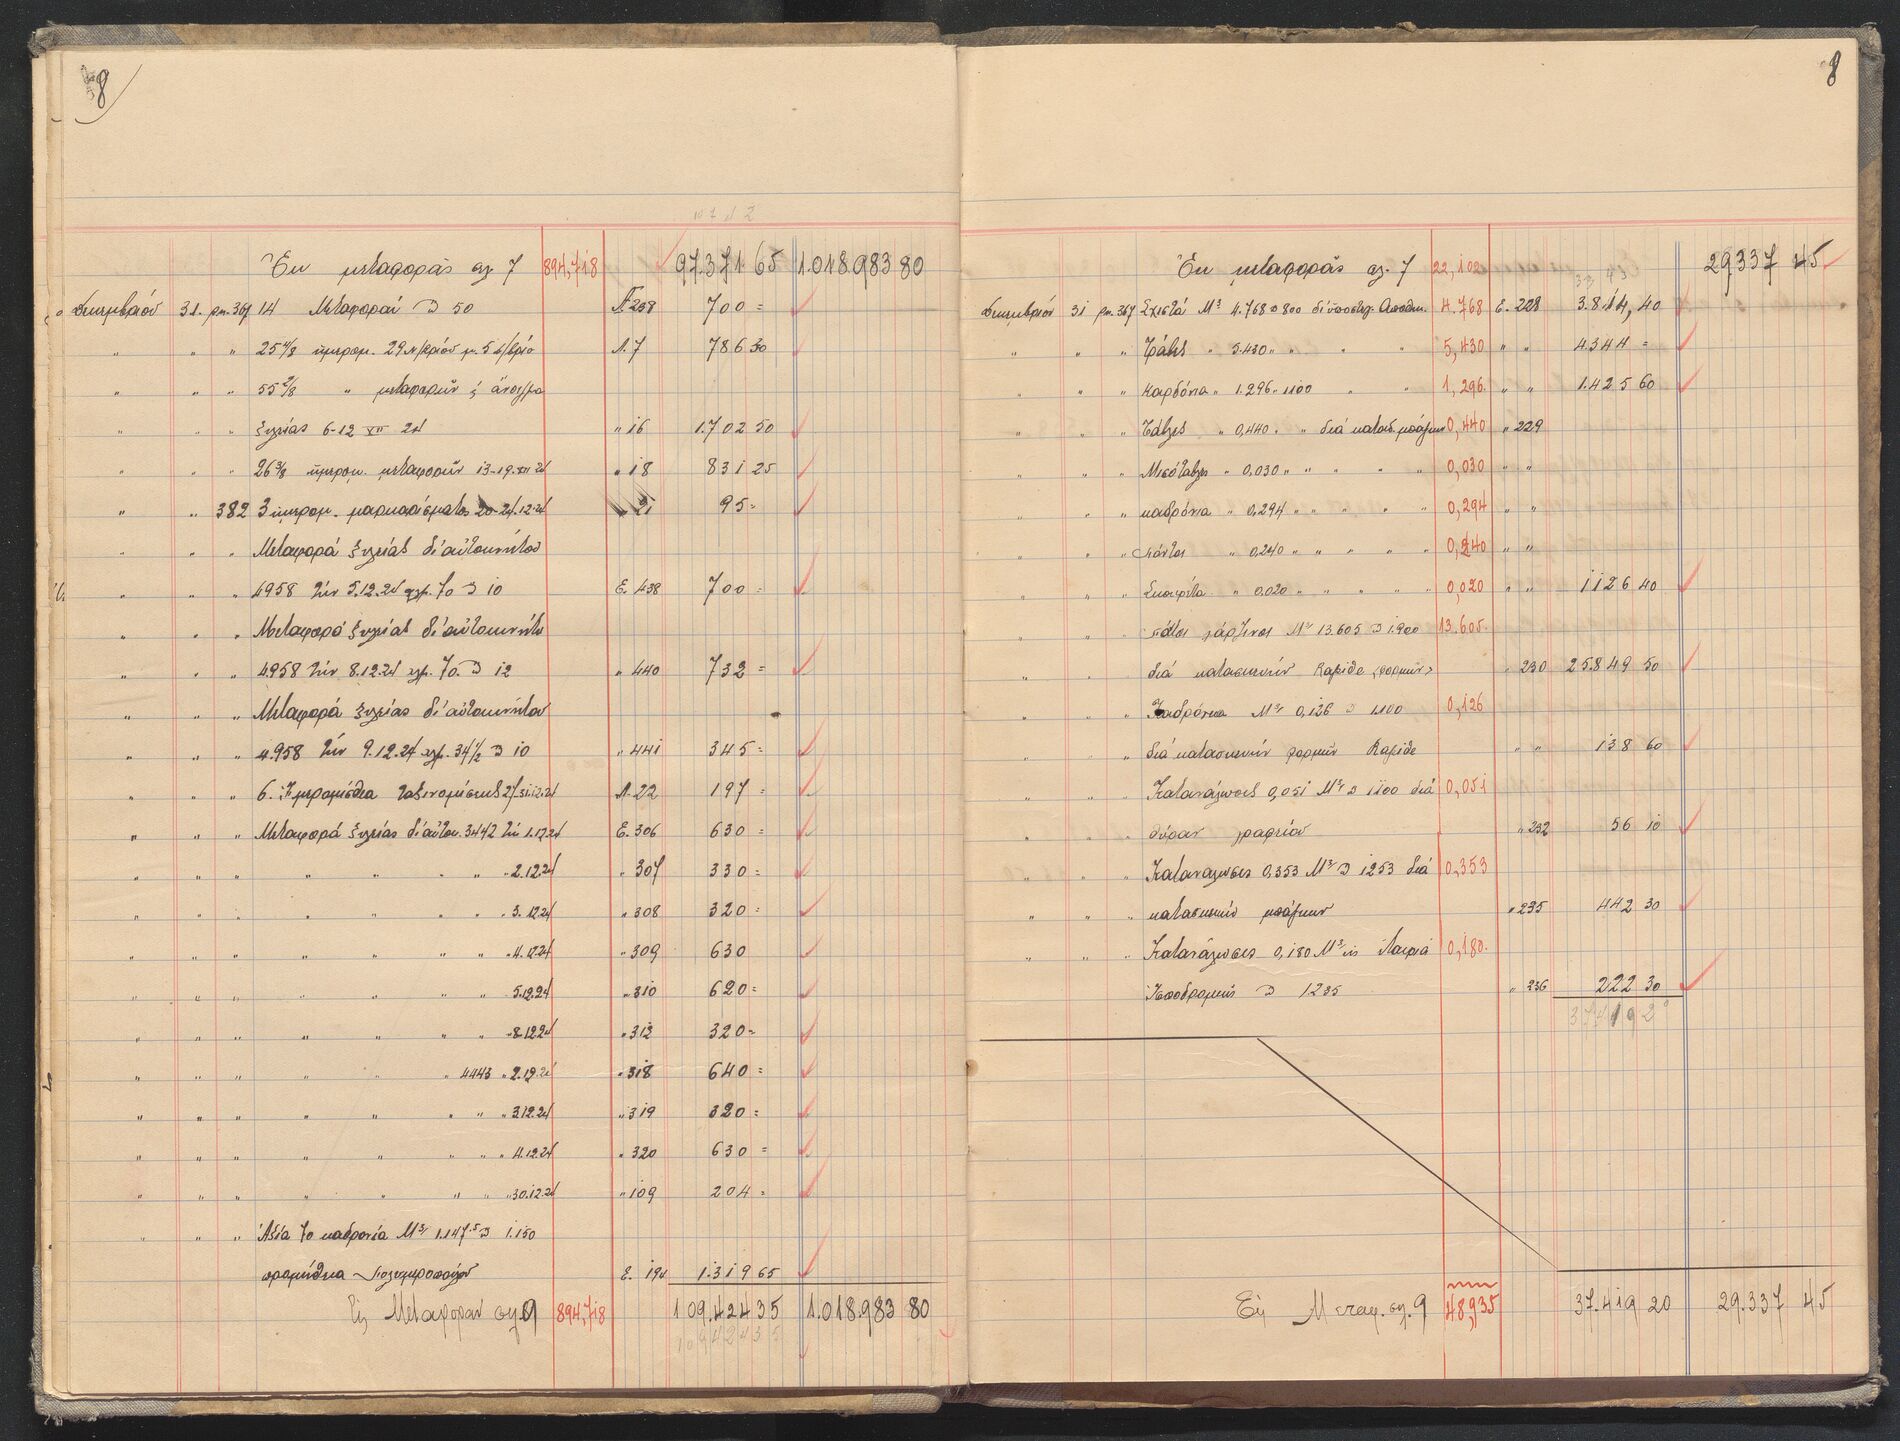 8
Ἐκ μεταφορᾶς σελ. 7 894,718 97.371 65 1.018.983 80
Δεκεμβρίου 31 ρπ. 367 14 Μεταφοραί 50 Λ 238 700=
" " " 25 4/8 ἡμερομ. 29 Ν/βρίου μ. 5 Δ/βρίο Λ. 7 786 30
" " " 55 2/8 " μεταφορῶν
" " " ξυλείας 6-12 XII 24 " 16 1.702 50
" " " 26 5/8 ἡμερομ. μεταφορῶν 13-19. XII 24 " 18 831 25
" " 382 3 ἡμερομ. μαρκαρίσματος 20-21.12.24 21 95=
" " " Μεταφορά ξυλείας δι' αὐτοκινήτου
" " " 4958 τήν 5.12.24 70 10 Ε. 438 700=
" " " Μεταφορά ξυλείας δι' αὐτοκινήτου
" " " 4958 τήν 8.12.24 12 " 440 732=
" " " Μεταφορά ξυλείας δι' αὐτοκινήτου
" " " 4.958 τήν 9.12.24 34 1/2 10 " 441 345=
" " " 6. Ἡμερομίσθια ταξινομήσεως 31.12.24 Λ. 22 197=
" " " Μεταφορά ξυλείας δι' αὐτοκ. 3442 τήν 1.12.24 Ε. 306 630=
" " " " " " " 2.12.24 " 307 330=
" " " " " " " 3.12.24 " 308 320=
" " " " " " " 4.12.24 " 309 630
" " " " " " " 5.12.24 " 310 620=
" " " " " " " 8.12.24 " 312 320=
" " " " " 4443 " 2.12.24 " 318 640=
" " " " " " " 3.12.24 " 319 320=
" " " " " " " 4.12.24 " 320 630=
" " " " " " " 30.12.24 " 109 204=
" " " Ἀξία 70 καδρονία Μ3 1.147.5 1.150
προμήθεια Ε. 194 1.319 65
Εἰς Μεταφοράν σελ 9 894,718 109.424 35 1.018.983 80
109424 35
8
Ἐκ μεταφορᾶς σελ. 7 22,102 29337 45
Δεκεμβρίου 31 ρπ. 367 Σχιστά Μ3 4.768 800 4.768 Ε. 228 3.814,40
" " " Τάβλες " 5.430 " " " " 5,430 " " 4344=
" " " Καρδόνια " 1.296 " 1100 " " 1,296 " " 1.425 60
" " " Τάβλες " 0,440 " " διά κατασ. 0,440 " 229
" " " Μισόταβλες " 0,030 " " " " " 0,030 " "
" " " καδρόνια " 0,294 " " " " " 0,294 " "
" " " " 0,240 " " " " " 0,240 " "
" " " " 0,020 " " " " " 0,020 " " 1126 40
" " " Μ3 13.605 1.900 13.605
" " " διά κατασκευήν Rapide φορμῶν " 230 25.849 50
" " " Καδρόνια Μ3 0,126 1.100 0,126
" " " διά κατασκευήν φορμῶν Rapide " " 138 60
" " " Κατανάλωσις 0,051 Μ3 1100 διά 0,051
" " " θύραν γραφείου " 232 56 10
" " " Κατανάλωσις 0,353 Μ3 1253 διά 0,353
" " " κατασκευήν " 235 442 30
" " " Κατανάλωσις 0,180 Μ3 εἰς Ἑταιρία 0,180
Ἱπποδρομιῶν 1235 " 236 222 30
37419 20
Εἰς Μεταφ. σελ. 9 48,935 37.419 20 29.337 45